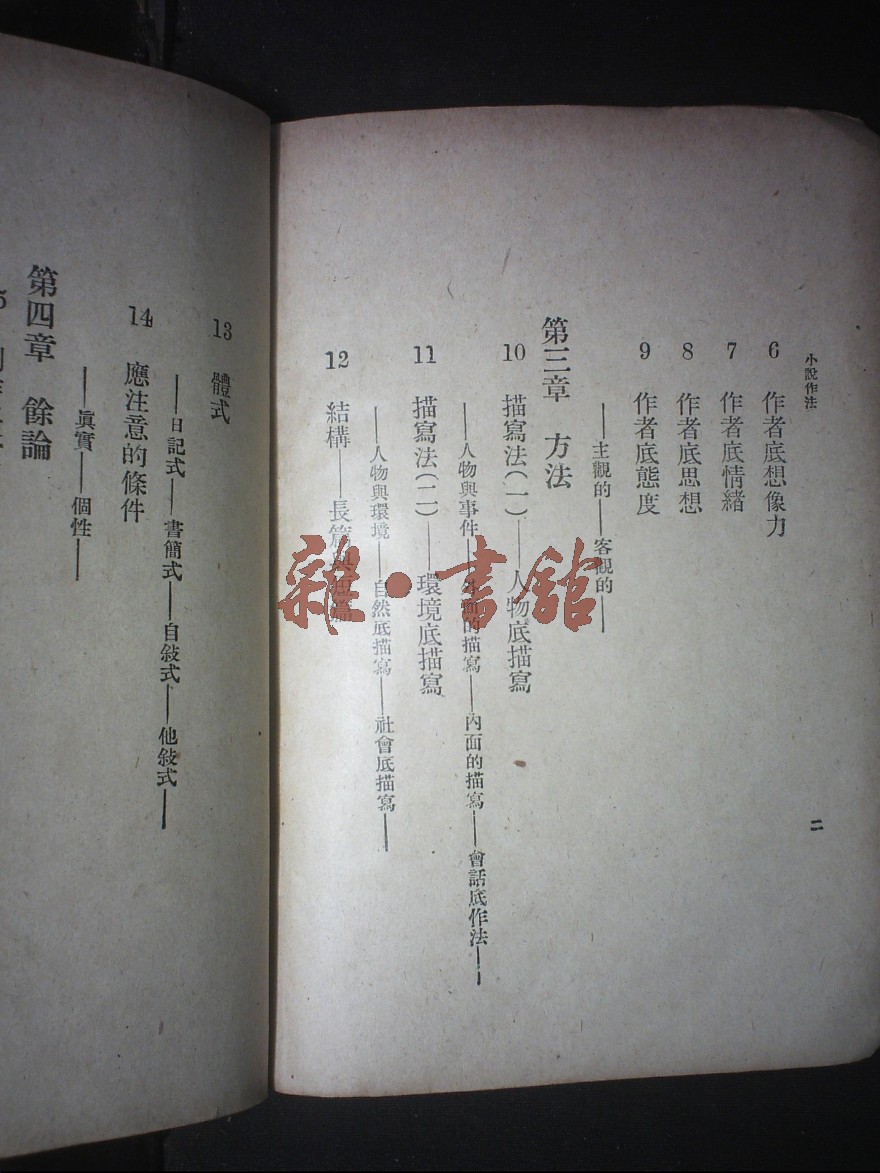 小說作法
6 作者底想像力
7 作者底情緒
8 作者底思想
9 作者底態度
——主觀的——客觀的——
第三章 方法
10 描寫法(一)——人物底描寫
——人物與事件——外面的描寫——內面的描寫——會話底作法——
11 描寫法(二)——環境底描寫
——人物與環境——自然底描寫——社會底描寫——
12 結構——長篇與短篇
二
13 體式
——日記式——書簡式——自敍式——他敍式——
14 應注意的條件
——眞實——個性——
第四章 餘論
雜·書舘